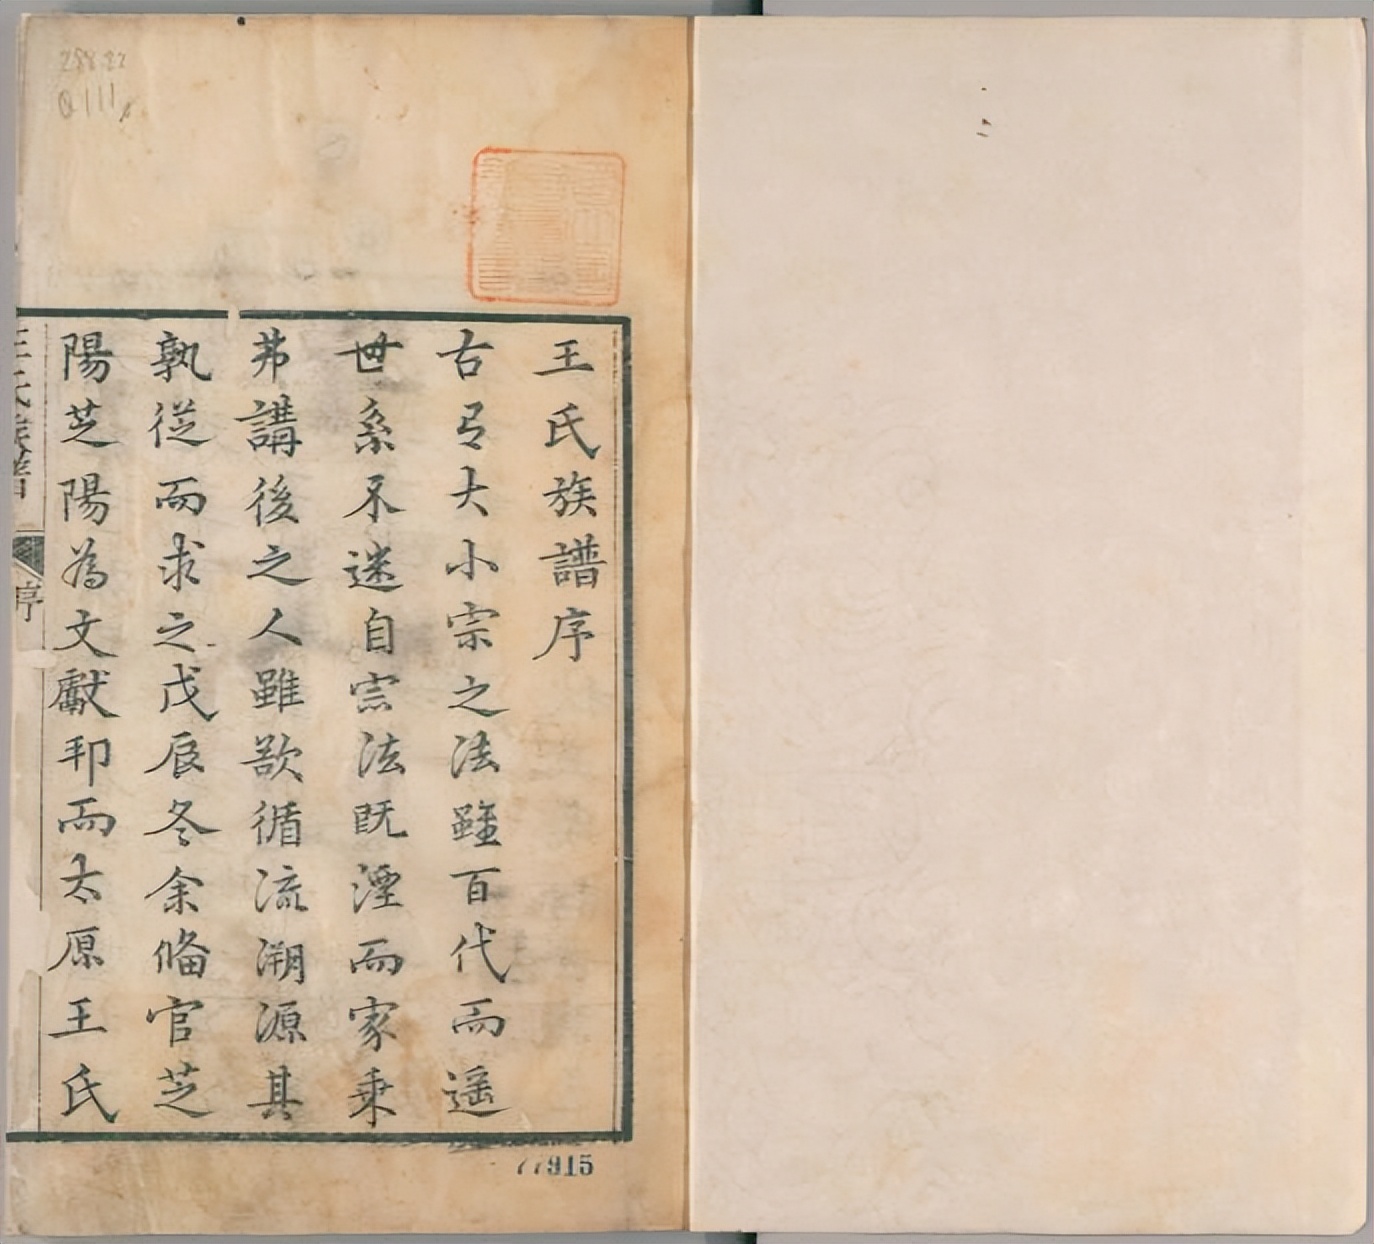 王氏族譜序
古有大小宗之法雖百代而遥
世系不迷自宗法既湮而家乗
弗講後之人雖欲循流溯源其
孰從而求之戊辰冬余偹官芝
陽芝陽為文獻邦而太原王氏
王氏族譜
序
77915
288.22
Q111